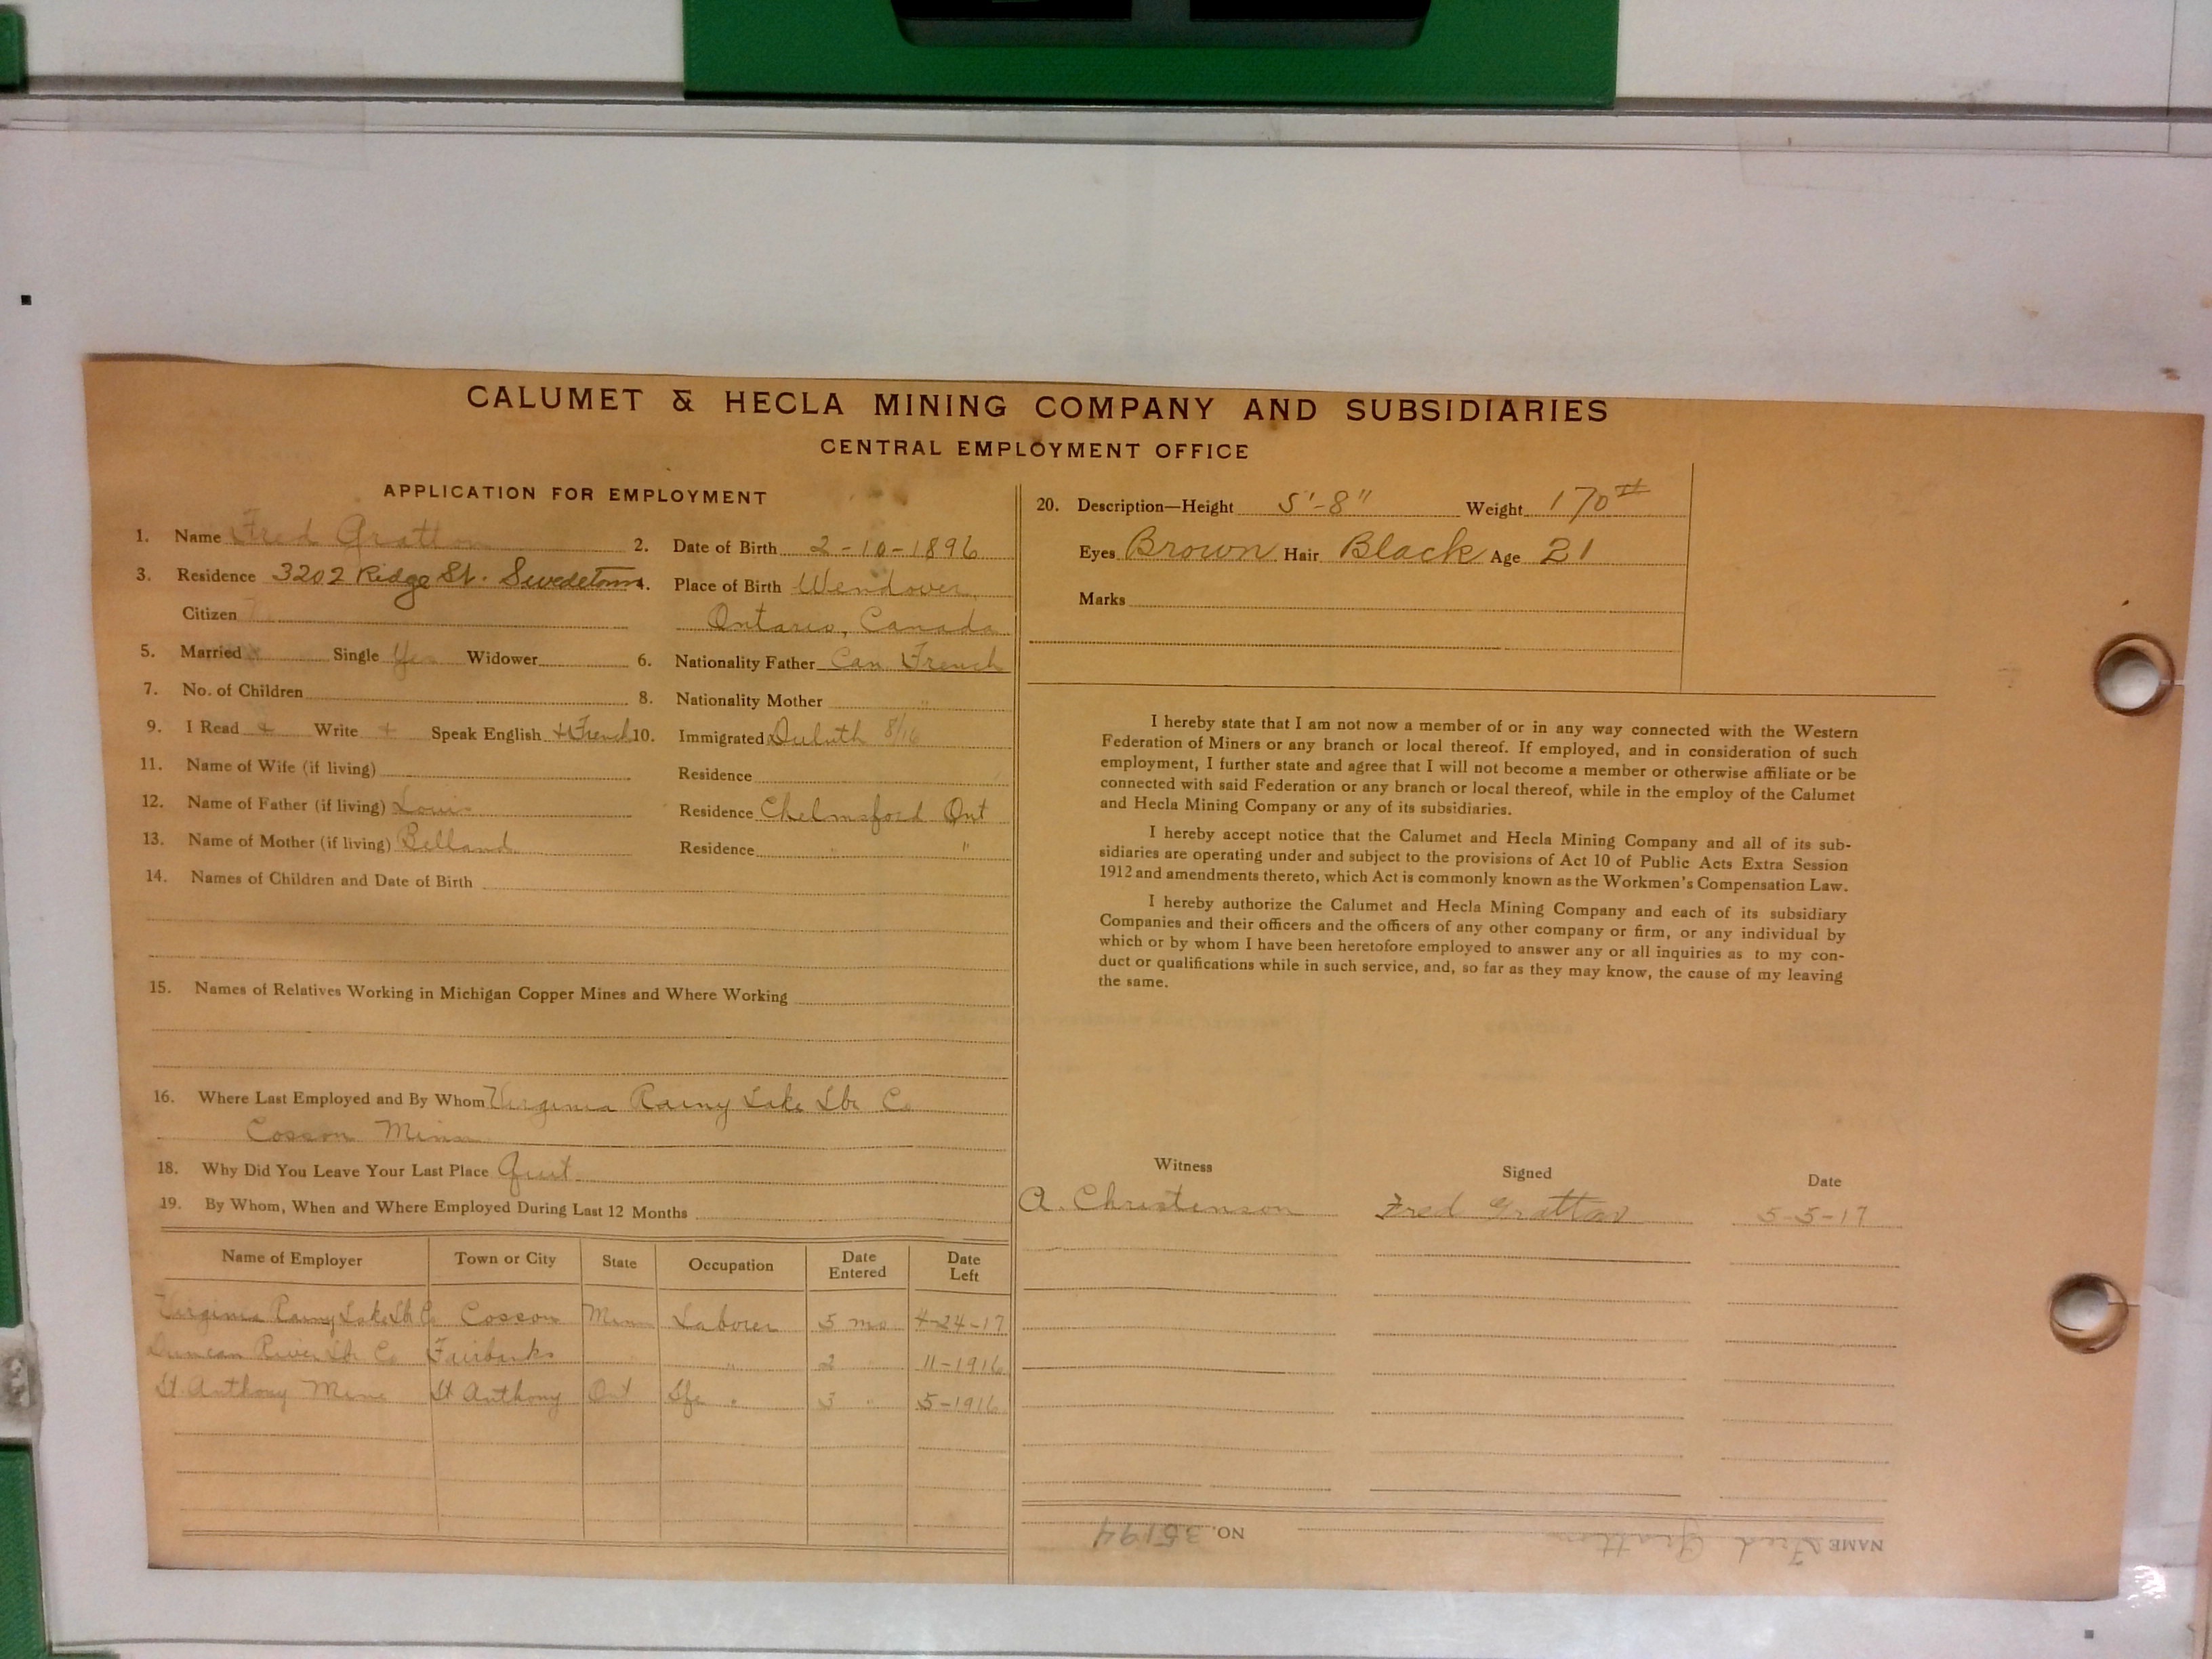 CALUMET & HECLA MINING COMPANY AND SUBSIDIARIES
CENTRAL EMPLOYMENT OFFICE
APPLICATION FOR EMPLOYMENT
1. Name Fred Gratton 2. Date of Birth 2-10-1896
3. Residence 3202 Ridge St. Swedetown 4. Place of Birth Wendover,
Citizen Ontario, Canada
5. Married Single Yes Widower 6. Nationality Father Can French
7. No. of Children 8. Nationality Mother "
9. I Read + Write + Speak English + French 10. Immigrated Duluth 8/16
11. Name of Wife (if living) Residence
12. Name of Father (if living) Louis Residence Chelmsford Ont
13. Name of Mother (if living) Belland Residence " "
14. Names of Children and Date of Birth
15. Names of Relatives Working in Michigan Copper Mines and Where Working
16. Where Last Employed and By Whom Virginia Rainy Lake Lbr Co
Cosson Minn
18. Why Did You Leave Your Last Place Quit
19. By Whom, When and Where Employed During Last 12 Months
Name of Employer Town or City State Occupation Date Entered Date Left
Virginia Rainy Lake Lbr Co Cosson Minn Laborer 5 mo 4-24-17
Duncan River Lbr Co Fairbanks " " 2 " 11-1916
St. Anthony Mine St Anthony Ont Sfc " 3 " 5-1916
20. Description—Height 5'-8" Weight 170#
Eyes Brown Hair Black Age 21
Marks
I hereby state that I am not now a member of or in any way connected with the Western
Federation of Miners or any branch or local thereof. If employed, and in consideration of such
employment, I further state and agree that I will not become a member or otherwise affiliate or be
connected with said Federation or any branch or local thereof, while in the employ of the Calumet
and Hecla Mining Company or any of its subsidiaries.
I hereby accept notice that the Calumet and Hecla Mining Company and all of its sub-
sidiaries are operating under and subject to the provisions of Act 10 of Public Acts Extra Session
1912 and amendments thereto, which Act is commonly known as the Workmen's Compensation Law.
I hereby authorize the Calumet and Hecla Mining Company and each of its subsidiary
Companies and their officers and the officers of any other company or firm, or any individual by
which or by whom I have been heretofore employed to answer any or all inquiries as to my con-
duct or qualifications while in such service, and, so far as they may know, the cause of my leaving
the same.
Witness Signed Date
A. Christenson Fred Gratton 5-5-17
NAME Fred Gratton NO. 35194